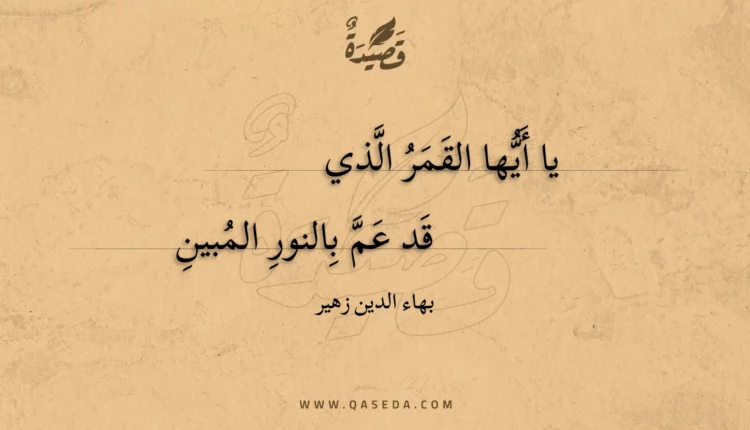 قَصِيْدَةٌ
يا أَيُّها القَمَرُ الَّذي
قَد عَمَّ بِالنورِ المُبينِ
بهاء الدين زهير
WWW.QASEDA.COM